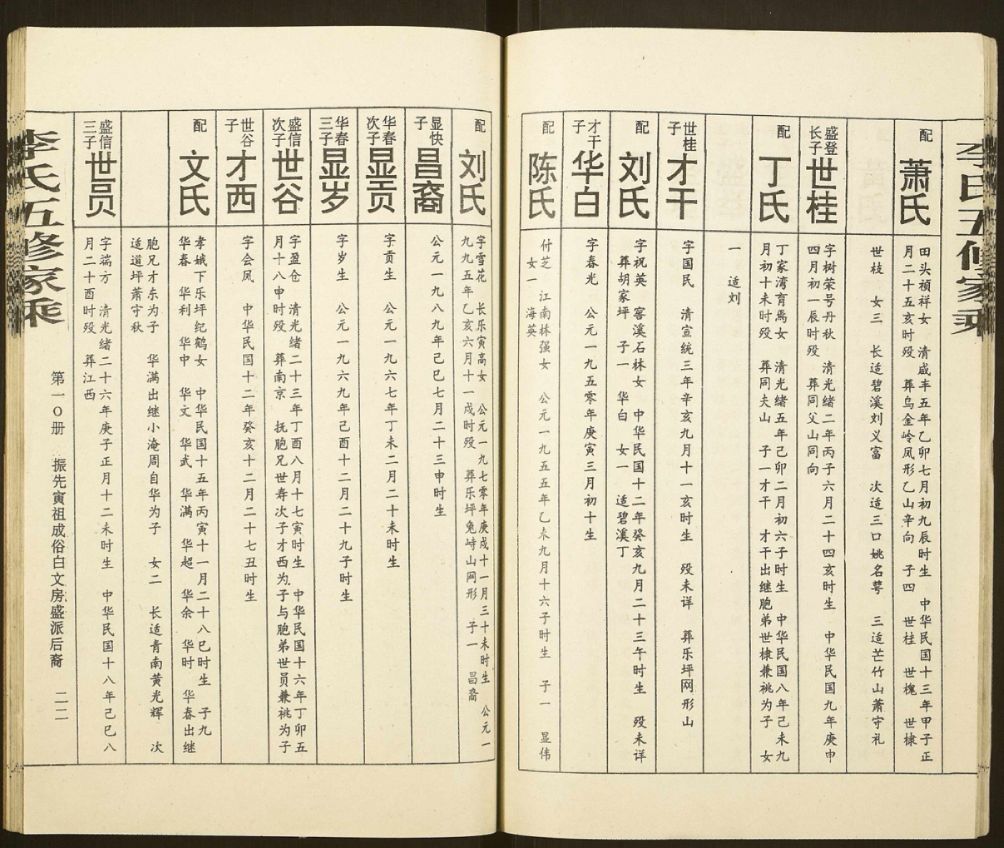 李氏五修家乘
配 萧氏
田头祯祥女 清咸丰五年乙卯七月初九辰时生 中华民国十三年甲子正
月二十五亥时殁 葬乌金岭凤形乙山辛向 子四 世桂 世槐 世棣
世枝 女三 长适碧溪刘义富 次适三口姚名萼 三适芒竹山萧守礼
盛登长子 世桂
字树荣号丹秋 清光绪二年丙子六月二十四亥时生 中华民国九年庚申
四月初一辰时殁 葬同父山同向
配 丁氏
丁家湾育禹女 清光绪五年己卯二月初六子时生 中华民国八年己未九
月初十未时殁 葬同夫山 子一才干 才干出继胞弟世棣兼祧为子 女
一 适刘
世桂子 才干
字国民 清宣统三年辛亥九月十一亥时生 殁未详 葬乐坪网形山
配 刘氏
字祝英 窖溪石林女 中华民国十二年癸亥九月二十三午时生 殁未详
葬胡家坪 子一 华白 女一 适碧溪丁
才干子 华白
字春光 公元一九五零年庚寅三月初十生
配 陈氏
付芝 江南林强女 公元一九五五年乙未九月十六子时生 子一 显伟
女一 海英
配 刘氏
字雪花 长乐寅高女 公元一九七零年庚戌十一月三十未时生 公元一
九九五年乙亥六月十一戌时殁 葬乐坪兔峙山网形 子一 昌裔
显快子 昌裔
公元一九八九年己巳七月二十三申时生
华春次子 显贡
字贡生 公元一九六七年丁未二月二十未时生
华春三子 显岁
字岁生 公元一九六九年己酉十二月二十九子时生
盛信次子 世谷
字盈仓 清光绪二十三年丁酉八月十七寅时生 中华民国十六年丁卯五
月十八申时殁 葬南京 抚胞兄世寿次子才西为子与胞弟世员兼祧为子
世谷子 才西
字会凤 中华民国十二年癸亥十二月二十七丑时生
配 文氏
孝城下乐坪纪鹤女 中华民国十五年丙寅十一月二十八巳时生 子九
华春 华利 华中 华文 华武 华满 华超 华余 华时 华春出继
胞兄才东为子 华满出继小淹周自华为子 女二 长适青南黄光辉 次
适道坪萧守秋
盛信三子 世员
字端方 清光绪二十六年庚子正月十二未时生 中华民国十八年己巳八
月二十酉时殁 葬江西
李氏五修家乘
第一0册 振先寅祖成俗白文房盛派后裔 二二